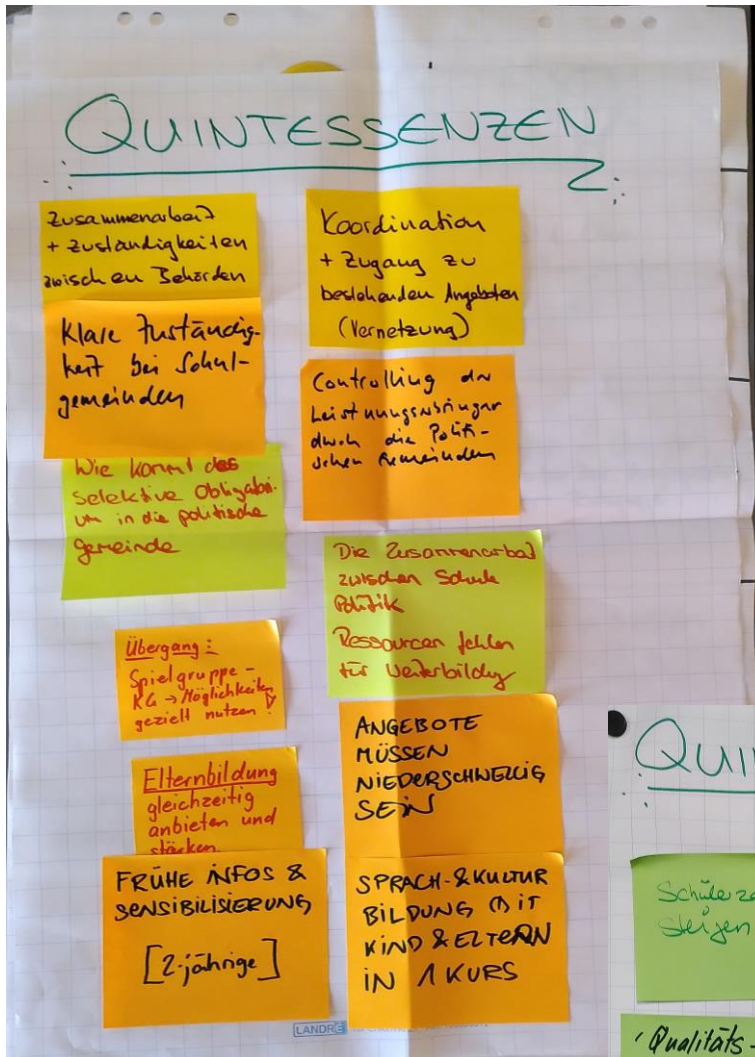 QUINTESSENZEN
Zusammenarbeit
+ Zuständigkeiten
zwischen Behörden
Klare Zuständig-
keit bei Schul-
gemeinden
Wie kommt das
selektive Obligatori-
um in die politische
gemeinde
Übergang:
Spielgruppe -
KG → Möglichkeiten
gezielt nutzen!
Elternbildung
gleichzeitig
anbieten und
stärken
FRÜHE INFOS &
SENSIBILISIERUNG
[2-jährige]
Koordination
+ Zugang zu
bestehenden Angeboten
(Vernetzung)
Controlling der
Leistungserbringer
durch die Politi-
schen Gemeinden
Die Zusammenarbeit
zwischen Schule
Politik
Ressourcen fehlen
für Weiterbildung
ANGEBOTE
MÜSSEN
NIEDERSCHWELLIG
SEIN
SPRACH-&KULTUR
BILDUNG MIT
KIND & ELTERN
IN 1 KURS
LANDRÉ
QUI
Schüler
steigen
Qualitäts-